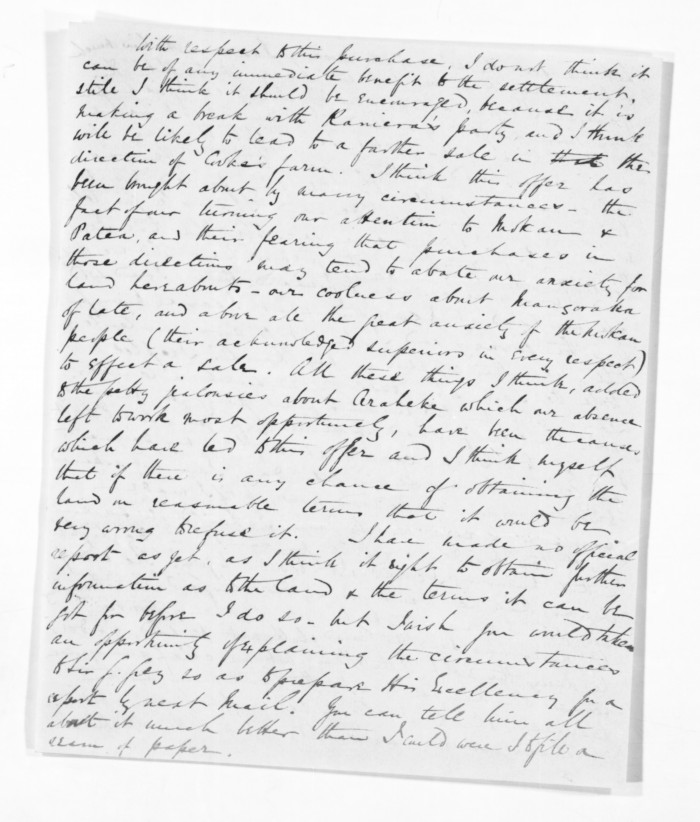 With respect to this purchase, I do not think it
can be of any immediate benefit to the settlement,
stile I think it should be encouraged, because it is
making a break with Raniera's party, and I think
will be likely to lead to a further sale in the
direction of Cooke's farm. I think this offer has
been brought about by many circumstances - the
fact of our turning our attention to Mokau &
Patea, and their fearing that purchases in
those directions may tend to abate our anxiety for
land hereabouts - our coolness about Mangoraka
of late, and above ale the great anxiety of the Mokau
people (their acknowledged superiors in every respect)
to effect a sale. All these things I think, added
to the petty jealousies about Araheke which our absence
left to work most opportunely, have been the causes
which have led to this offer and I think myself
that if there is any chance of obtaining the
land on reasonable terms that it would be
very wrong to refuse it. I have made no official
report as yet, as I think it right to obtain further
information as to the land & the terms it can be
got for before I do so - but I wish you would take
an opportunity of explaining the circumstances
to Sir G. Grey so as to prepare His Excellency for a
report by next Mail. You can tell him all
about it much better than I could were I to file a
ream of paper.